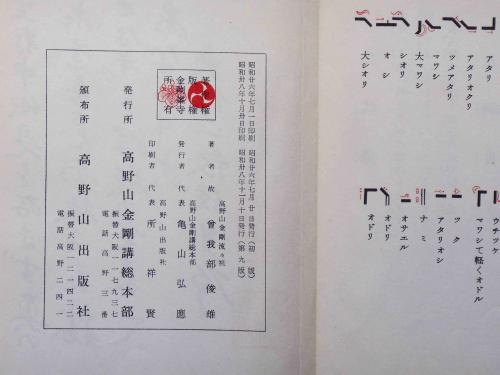 アタリ
アタリオクリ
ツメアタリ
マワシ
大マワシ
シオリ
オシ
大シオリ
ウチツケ
マワシて軽くオドル
ツク
アタリオシ
ナミ
オサエル
オドリ
オドリ
昭和廿六年七月一日印刷 昭和廿六年七月廿日発行(初版)
昭和廿八年十月卅日印刷 昭和廿八年十一月十日発行(第九版)
著作権
版権
金剛峯寺
所有
高野山金剛流々祖
著者 故 曾我部俊雄
高野山金剛講総本部
発行者 代表 亀山弘應
高野山出版社
印刷者 代表 所祥賢
発行所 高野山金剛講総本部
振替大阪一七九三七
電話高野三番
頒布所 高野山出版社
振替大阪一二一四二二
電話高野二四一